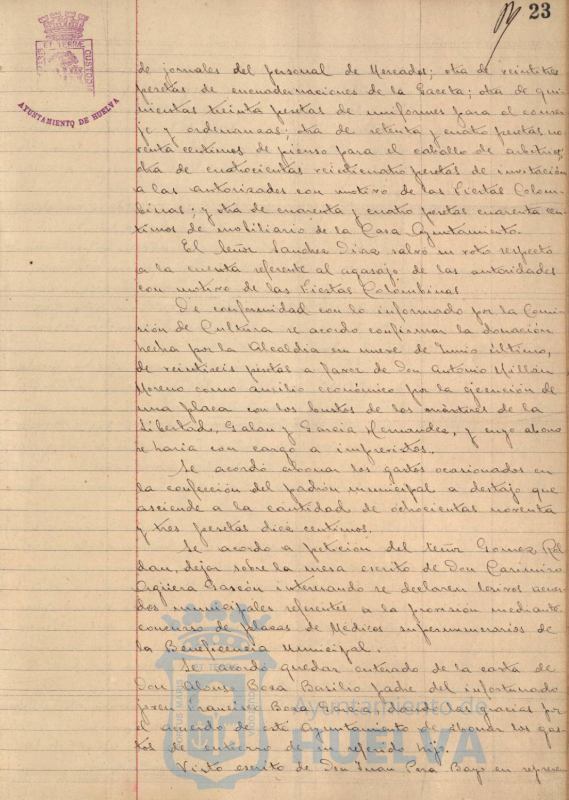 23
PORTUS MARIS ET TERRAE CUSTODIA
AYUNTAMIENTO DE HUELVA
de jornales del personal de Mercados; otra de veintitres
pesetas de encuadernaciones de la Gaceta; otra de qui
nientas treinta pesetas de uniformes para el conser
je y ordenanzas; otra de setenta y cuatro pesetas no
venta centimos de pienso para el caballo de arbitrios;
otra de cuatrocientas veinticuatro pesetas de invitación
a las autoridades con motivo de las Fiestas Colom-
binas; y otra de cuarenta y cuatro pesetas cuarenta cen
timos de mobiliario de la Casa Ayuntamiento.
El Señor Sanchez Diaz salvó su voto respecto
a la cuenta referente al agasajo de las autoridades
con motivo de las Fiestas Colombinas
De conformidad con lo informado por la Comi
sión de Cultura se acordo confirmar la donación
hecha por la Alcaldia en nueve de Junio último,
de veinticinco pesetas a favor de Don Antonio Millán
Moreno como auxilio económico por la ejecución de
una placa con los bustos de los mártires de la
Libertad, Galan y Garcia Hernandez, y cuyo abono
se haria con cargo a imprevistos.
Se acordó abonar los gastos ocasionados en
la confección del padrón municipal a destajo que
asciende a la cantidad de ochocientas noventa
y tres pesetas diez centimos.
Se acordo a petición del Señor Gomez Rol
dan, dejar sobre la mesa escrito de Don Casimiro
Gascón interesando se declaren lesivos acuer
dos municipales referentes a la provisión mediante
concurso de plazas de Médicos supernumerarios de
la Beneficencia Municipal.
Se acordó quedar enterado de la carta de
Don Alonso Boza Basilio padre del infortunado
joven Francisco Boza Garcia, dando las gracias por
el acuerdo de este Ayuntamiento de abonar los gas
tos de entierro de su referido hijo.
Visto escrito de Don Juan en represen
Ayuntamiento de
HUELVA